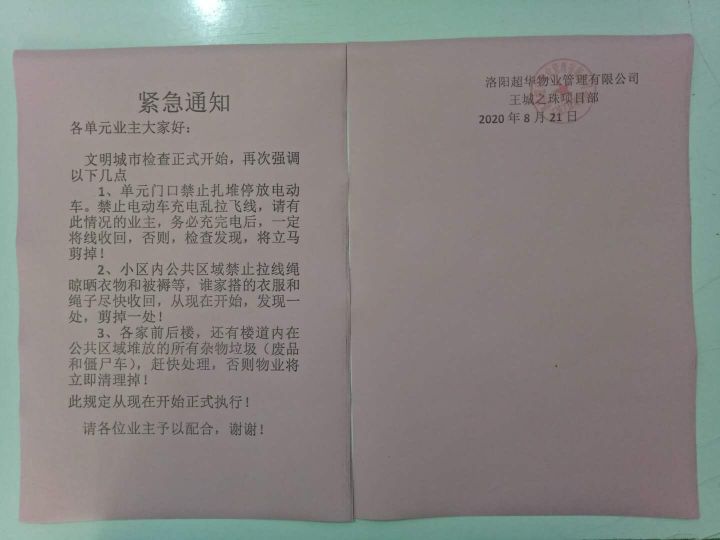 紧急通知
各单元业主大家好：
文明城市检查正式开始，再次强调
以下几点
1、单元门口禁止扎堆停放电动
车。禁止电动车充电乱拉飞线，请有
此情况的业主，务必充完电后，一定
将线收回，否则，检查发现，将立马
剪掉！
2、小区内公共区域禁止拉线绳
晾晒衣物和被褥等，谁家搭的衣服和
绳子尽快收回，从现在开始，发现一
处，剪掉一处！
3、各家前后楼，还有楼道内在
公共区域堆放的所有杂物垃圾（废品
和僵尸车），赶快处理，否则物业将
立即清理掉！
此规定从现在开始正式执行！
请各位业主予以配合，谢谢！
洛阳超华物业管理有限公司
王城之珠项目部
2020 年 8 月 21 日